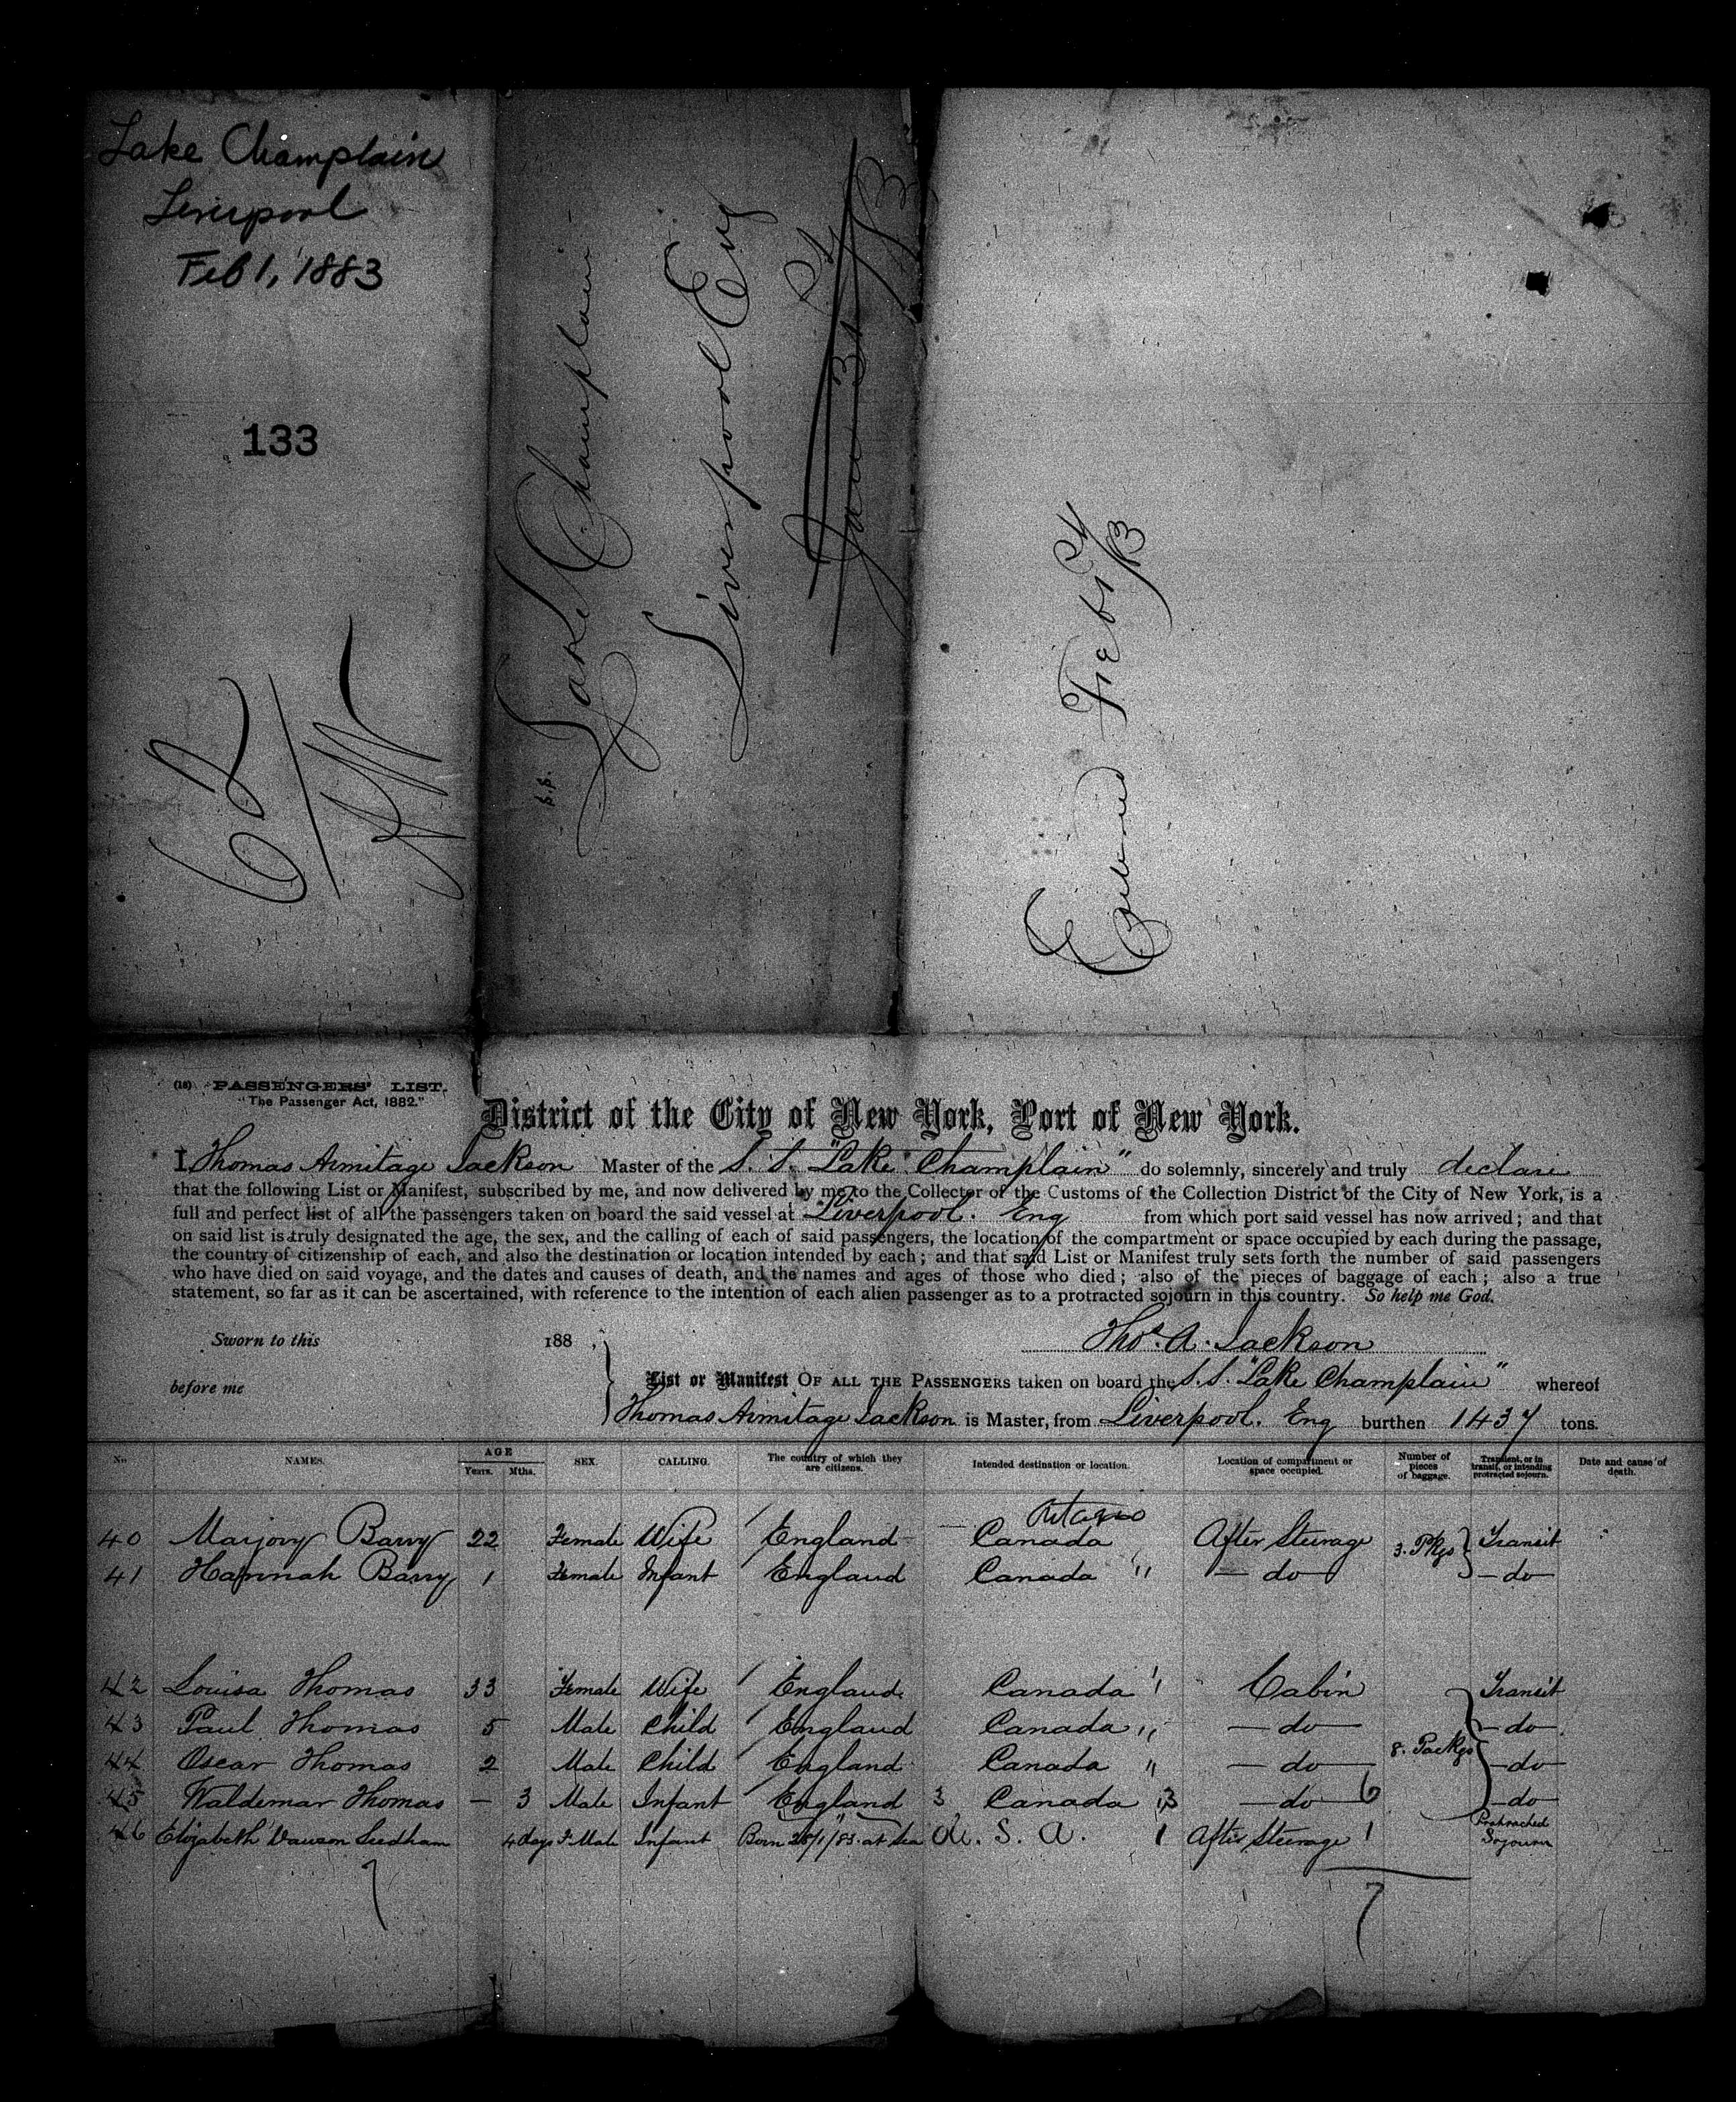 Lake Champlain
Liverpool
Feb 1, 1883
133
62
S.S.
Lake Champlain
Liverpool Eng
Jan 31
Feb 1
(18) PASSENGERS' LIST.
"The Passenger Act, 1882."
District of the City of New York, Port of New York.
I, Thomas Armitage Jackson Master of the S. S. "Lake Champlain" do solemnly, sincerely and truly declare
that the following List or Manifest, subscribed by me, and now delivered by me to the Collector of the Customs of the Collection District of the City of New York, is a
full and perfect list of all the passengers taken on board the said vessel at Liverpool. Eng from which port said vessel has now arrived; and that
on said list is truly designated the age, the sex, and the calling of each of said passengers, the location of the compartment or space occupied by each during the passage,
the country of citizenship of each, and also the destination or location intended by each; and that said List or Manifest truly sets forth the number of said passengers
who have died on said voyage, and the dates and causes of death, and the names and ages of those who died; also of the pieces of baggage of each; also a true
statement, so far as it can be ascertained, with reference to the intention of each alien passenger as to a protracted sojourn in this country. So help me God.
Sworn to this 188 , Thos. A. Jackson
before me List or Manifest OF ALL THE PASSENGERS taken on board the S.S. "Lake Champlain" whereof
Thomas Armitage Jackson is Master, from Liverpool. Eng burthen 1437 tons.
No NAMES. AGE Years. Mths. SEX. CALLING. The country of which they are citizens. Intended destination or location. Location of compartment or space occupied. Number of pieces of baggage. Transient, or in transit, or intending protracted sojourn. Date and cause of death.
40 Marjory Barry 22 Female Wife England Canada After Steerage 3. Pkgs Transit
41 Hannah Barry 1 Female Infant England Canada " — do — — do —
42 Louisa Thomas 33 Female Wife England Canada " Cabin Transit
43 Paul Thomas 5 Male Child England Canada " — do — — do —
44 Oscar Thomas 2 Male Child England Canada " — do — 8. Packgs — do —
45 Waldemar Thomas — 3 Male Infant England 3 Canada " 3 — do — 6 — do —
46 Elizabeth Dawson 4 days F. Male Infant Born 28/1/83. at Sea U. S. A. 1 After Steerage 1 Protracted Sojourn
7 7